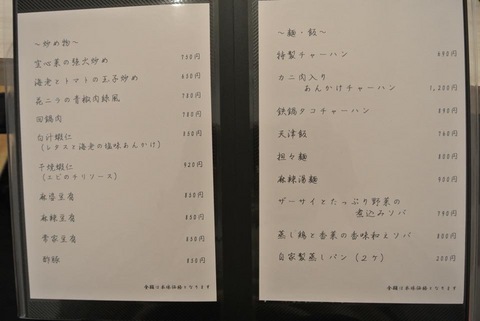 ～炒め物～
空心菜の強火炒め 750円
海老とトマトの玉子炒め 850円
花ニラの青椒肉絲風 780円
回鍋肉 780円
白汁蝦仁 850円
(レタスと海老の塩味あんかけ)
干焼蝦仁 920円
(エビのチリソース)
麻婆豆腐 850円
麻辣豆腐 850円
常家豆腐 850円
酢豚 850円
金額は本体価格となります
～麺・飯～
特製チャーハン 690円
カニ肉入り
あんかけチャーハン 1,200円
鉄鍋タコチャーハン 890円
天津飯 760円
担々麺 800円
麻辣湯麺 950円
ザーサイとたっぷり野菜の
煮込みソバ 790円
蒸し鶏と香菜の香味和えソバ 800円
自家製蒸しパン (2ケ) 200円
金額は本体価格となります